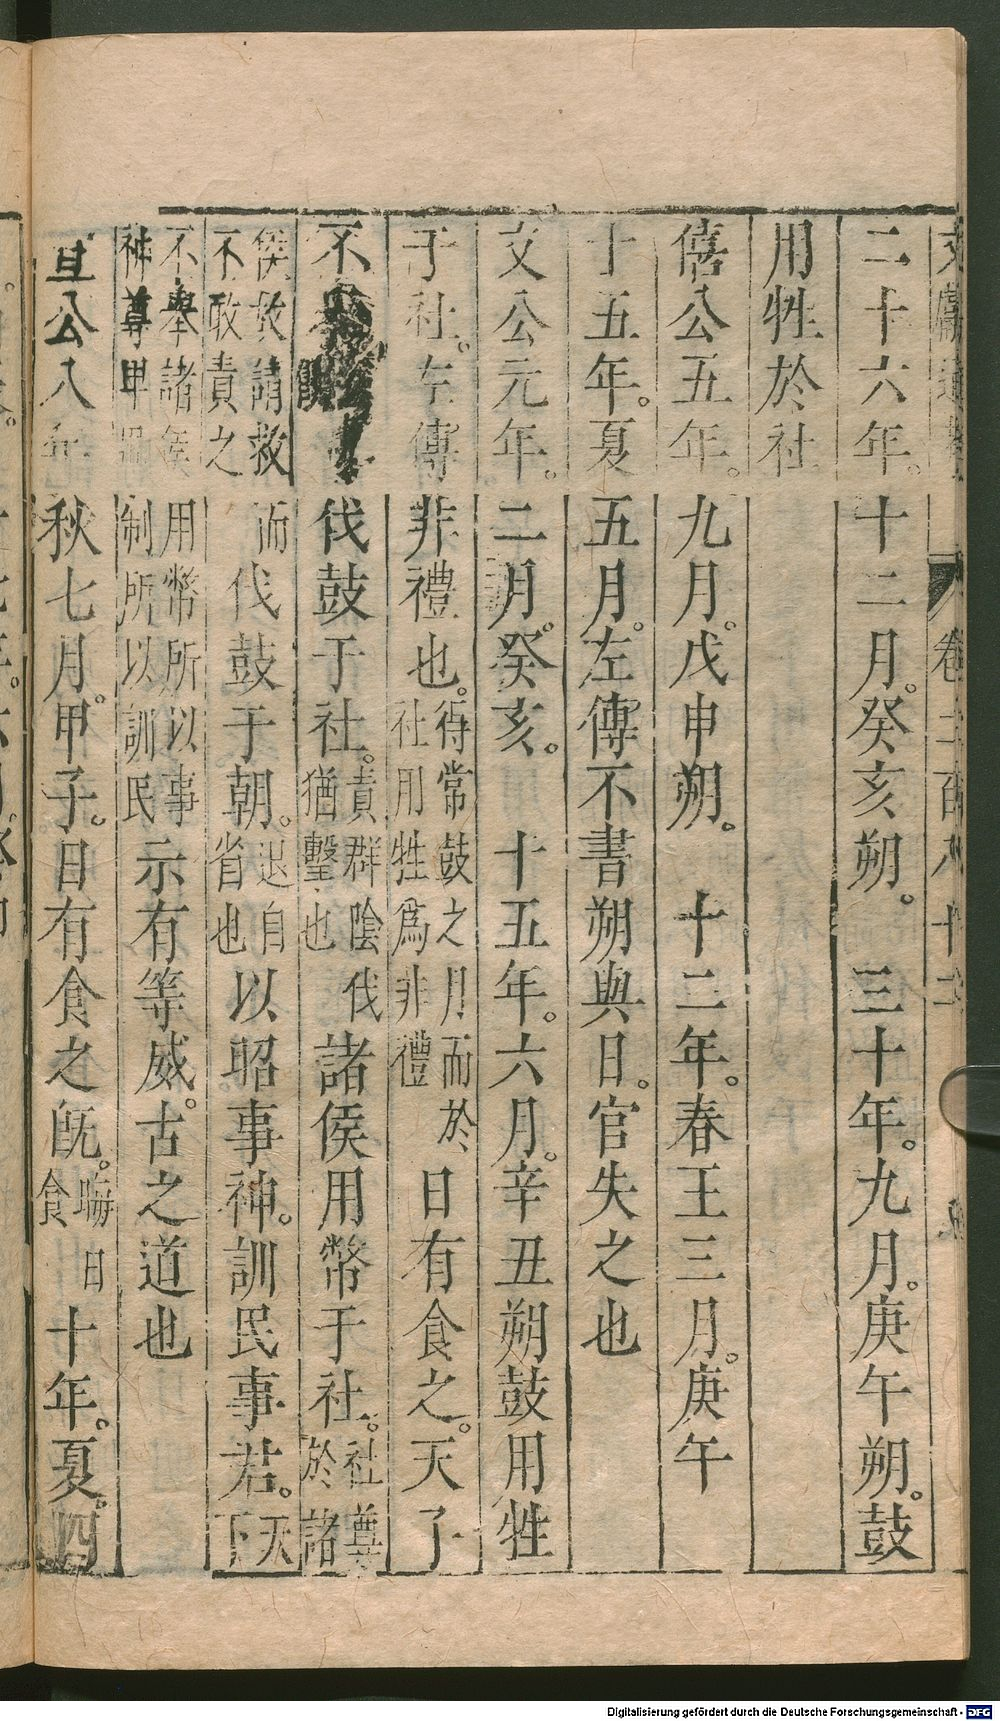 文獻通考 卷二百八十二
二十六年。十二月。癸亥朔。 三十年。九月。庚午朔。鼓
用牲於社
僖公五年。九月。戊申朔。 十二年。春王三月。庚午
十五年。夏五月。左傳不書朔與日。官失之也
文公元年。二月。癸亥。 十五年。六月。辛丑朔鼓用牲
于社。左傳非禮也。得常鼓之月而於社用牲爲非禮 日有食之。天子
不 伐鼓于社。責群陰伐猶擊也 諸侯用幣于社。社尊於諸
侯故請救不敢責之 而伐鼓于朝。退自省也 以昭事神。訓民事君。天下
不舉諸侯用幣所以事神尊卑 制所以訓民 示有等威。古之道也
宣公八年秋七月。甲子。日有食之既。晦日食 十年。夏。四
Digitalisierung gefördert durch die Deutsche Forschungsgemeinschaft - DFG